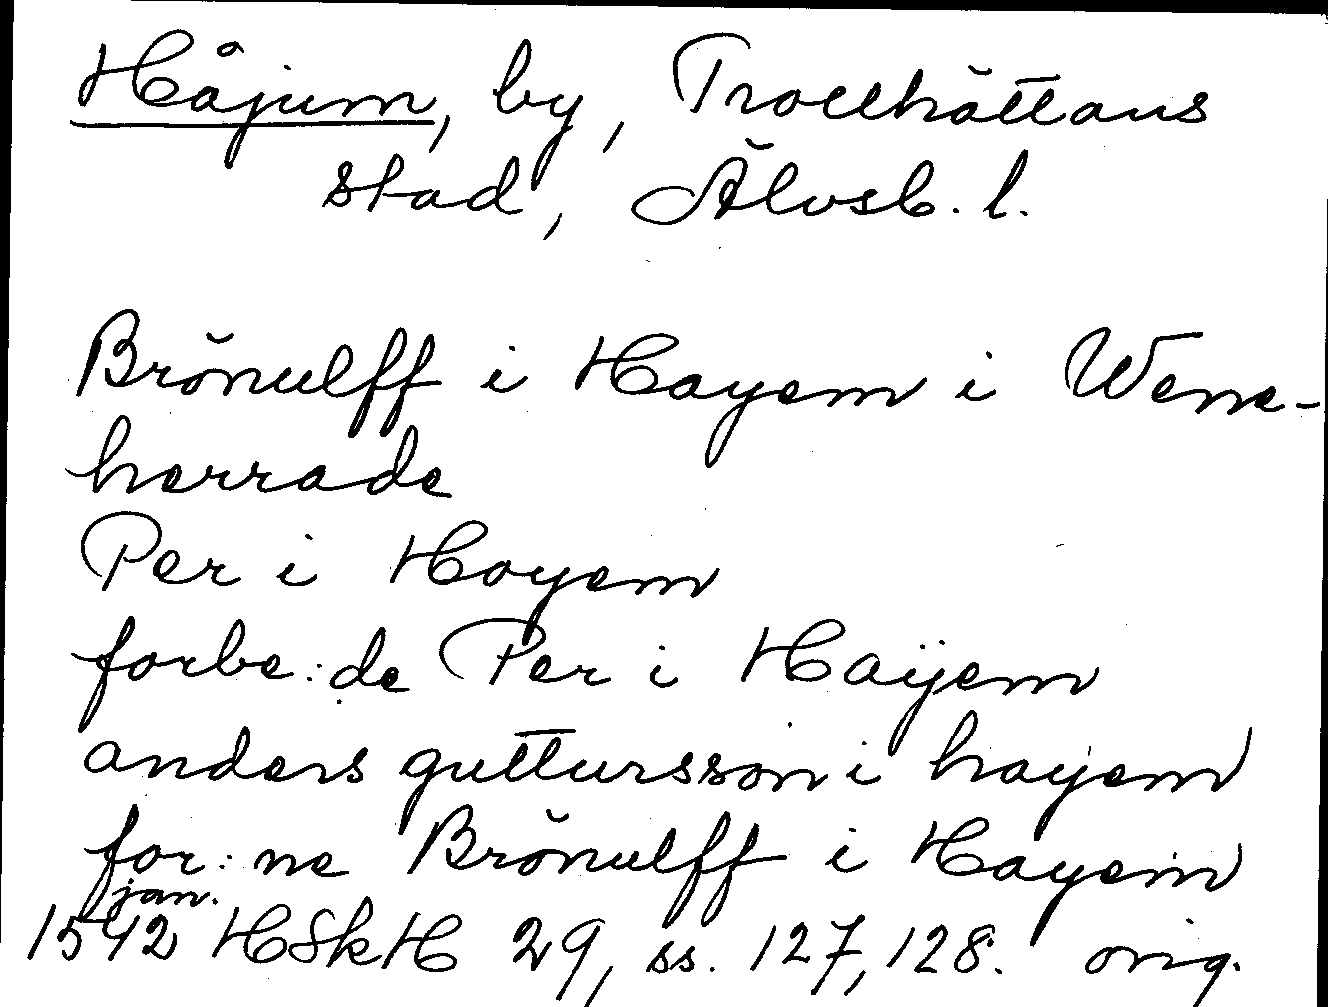 Håjum, by, Trollhättans
stad, Älvsb. l.
Brönulff i Hayem i Wene-
herrade
Per i Hoyem
forbe:de Per i Haÿem
anders guttursson i hayem
for:ne Brönulff i Hayem
jan.
1542 HSkH 29, ss. 127, 128. orig.